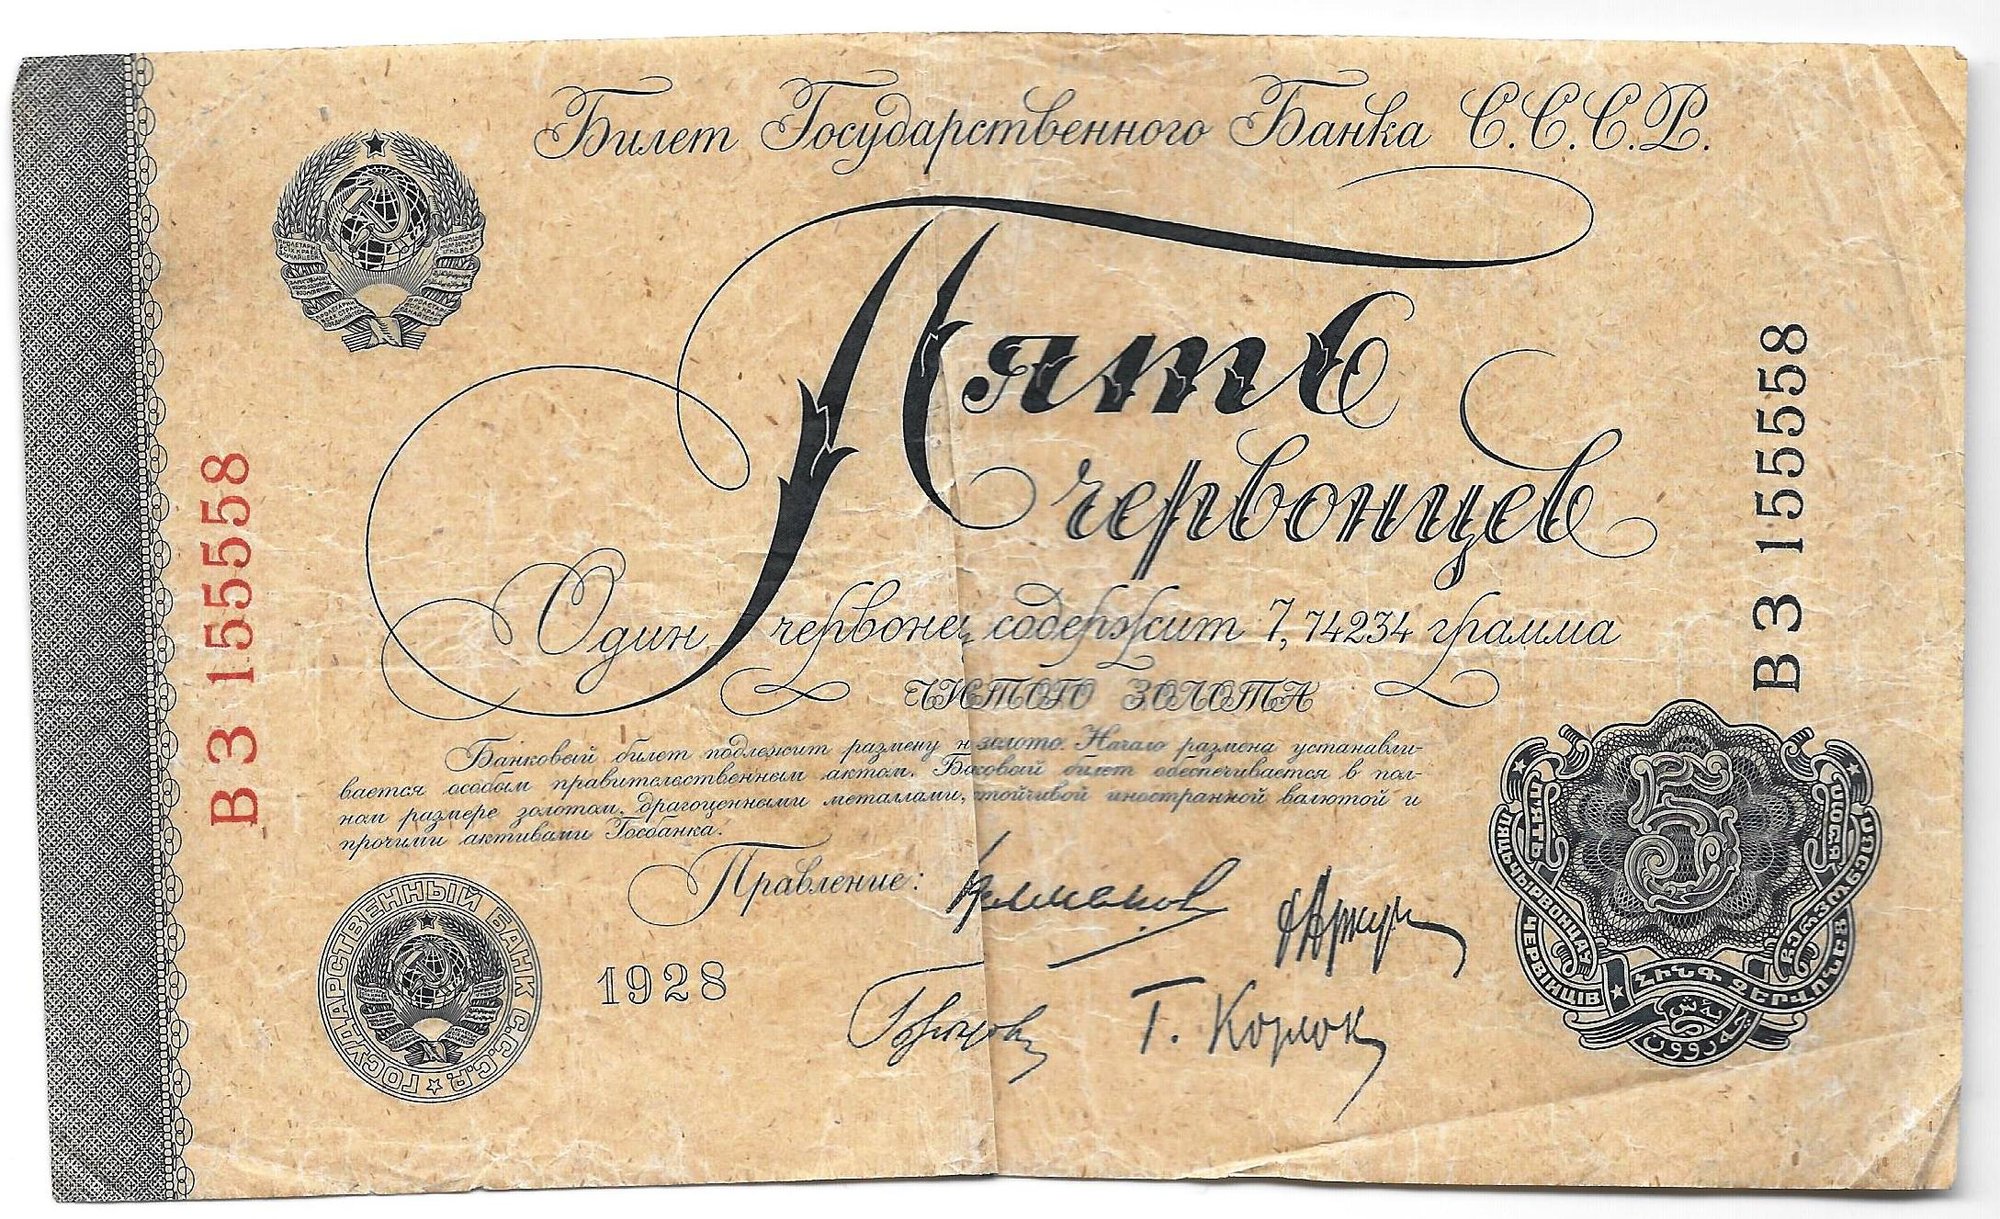 Билет Государственного Банка С.С.С.Р.
Пять
червонцев
Один червонец содержит 7,74234 грамма
ЧИСТОГО ЗОЛОТА
Банковый билет подлежит размену н золото. Начало размена устанавли-
вается особым правительственным актом. Ба ковый билет обеспечивается в пол-
ном размере золотом, драгоценными металлами, стойчивой иностранной валютой и
прочими активами Госбанка.
Правление:
1928
ВЗ 155558
ВЗ 155558
ГОСУДАРСТВЕННЫЙ БАНК С.С.С.Р.
5
П'ЯТЬ
ЧЕРВІНЦІВ
ПЯЦЬ ЧЫРВОНЦАЎ
ՀԻՆԳ ՉԵՐՎՈՆԵՑ
Г. Корлок